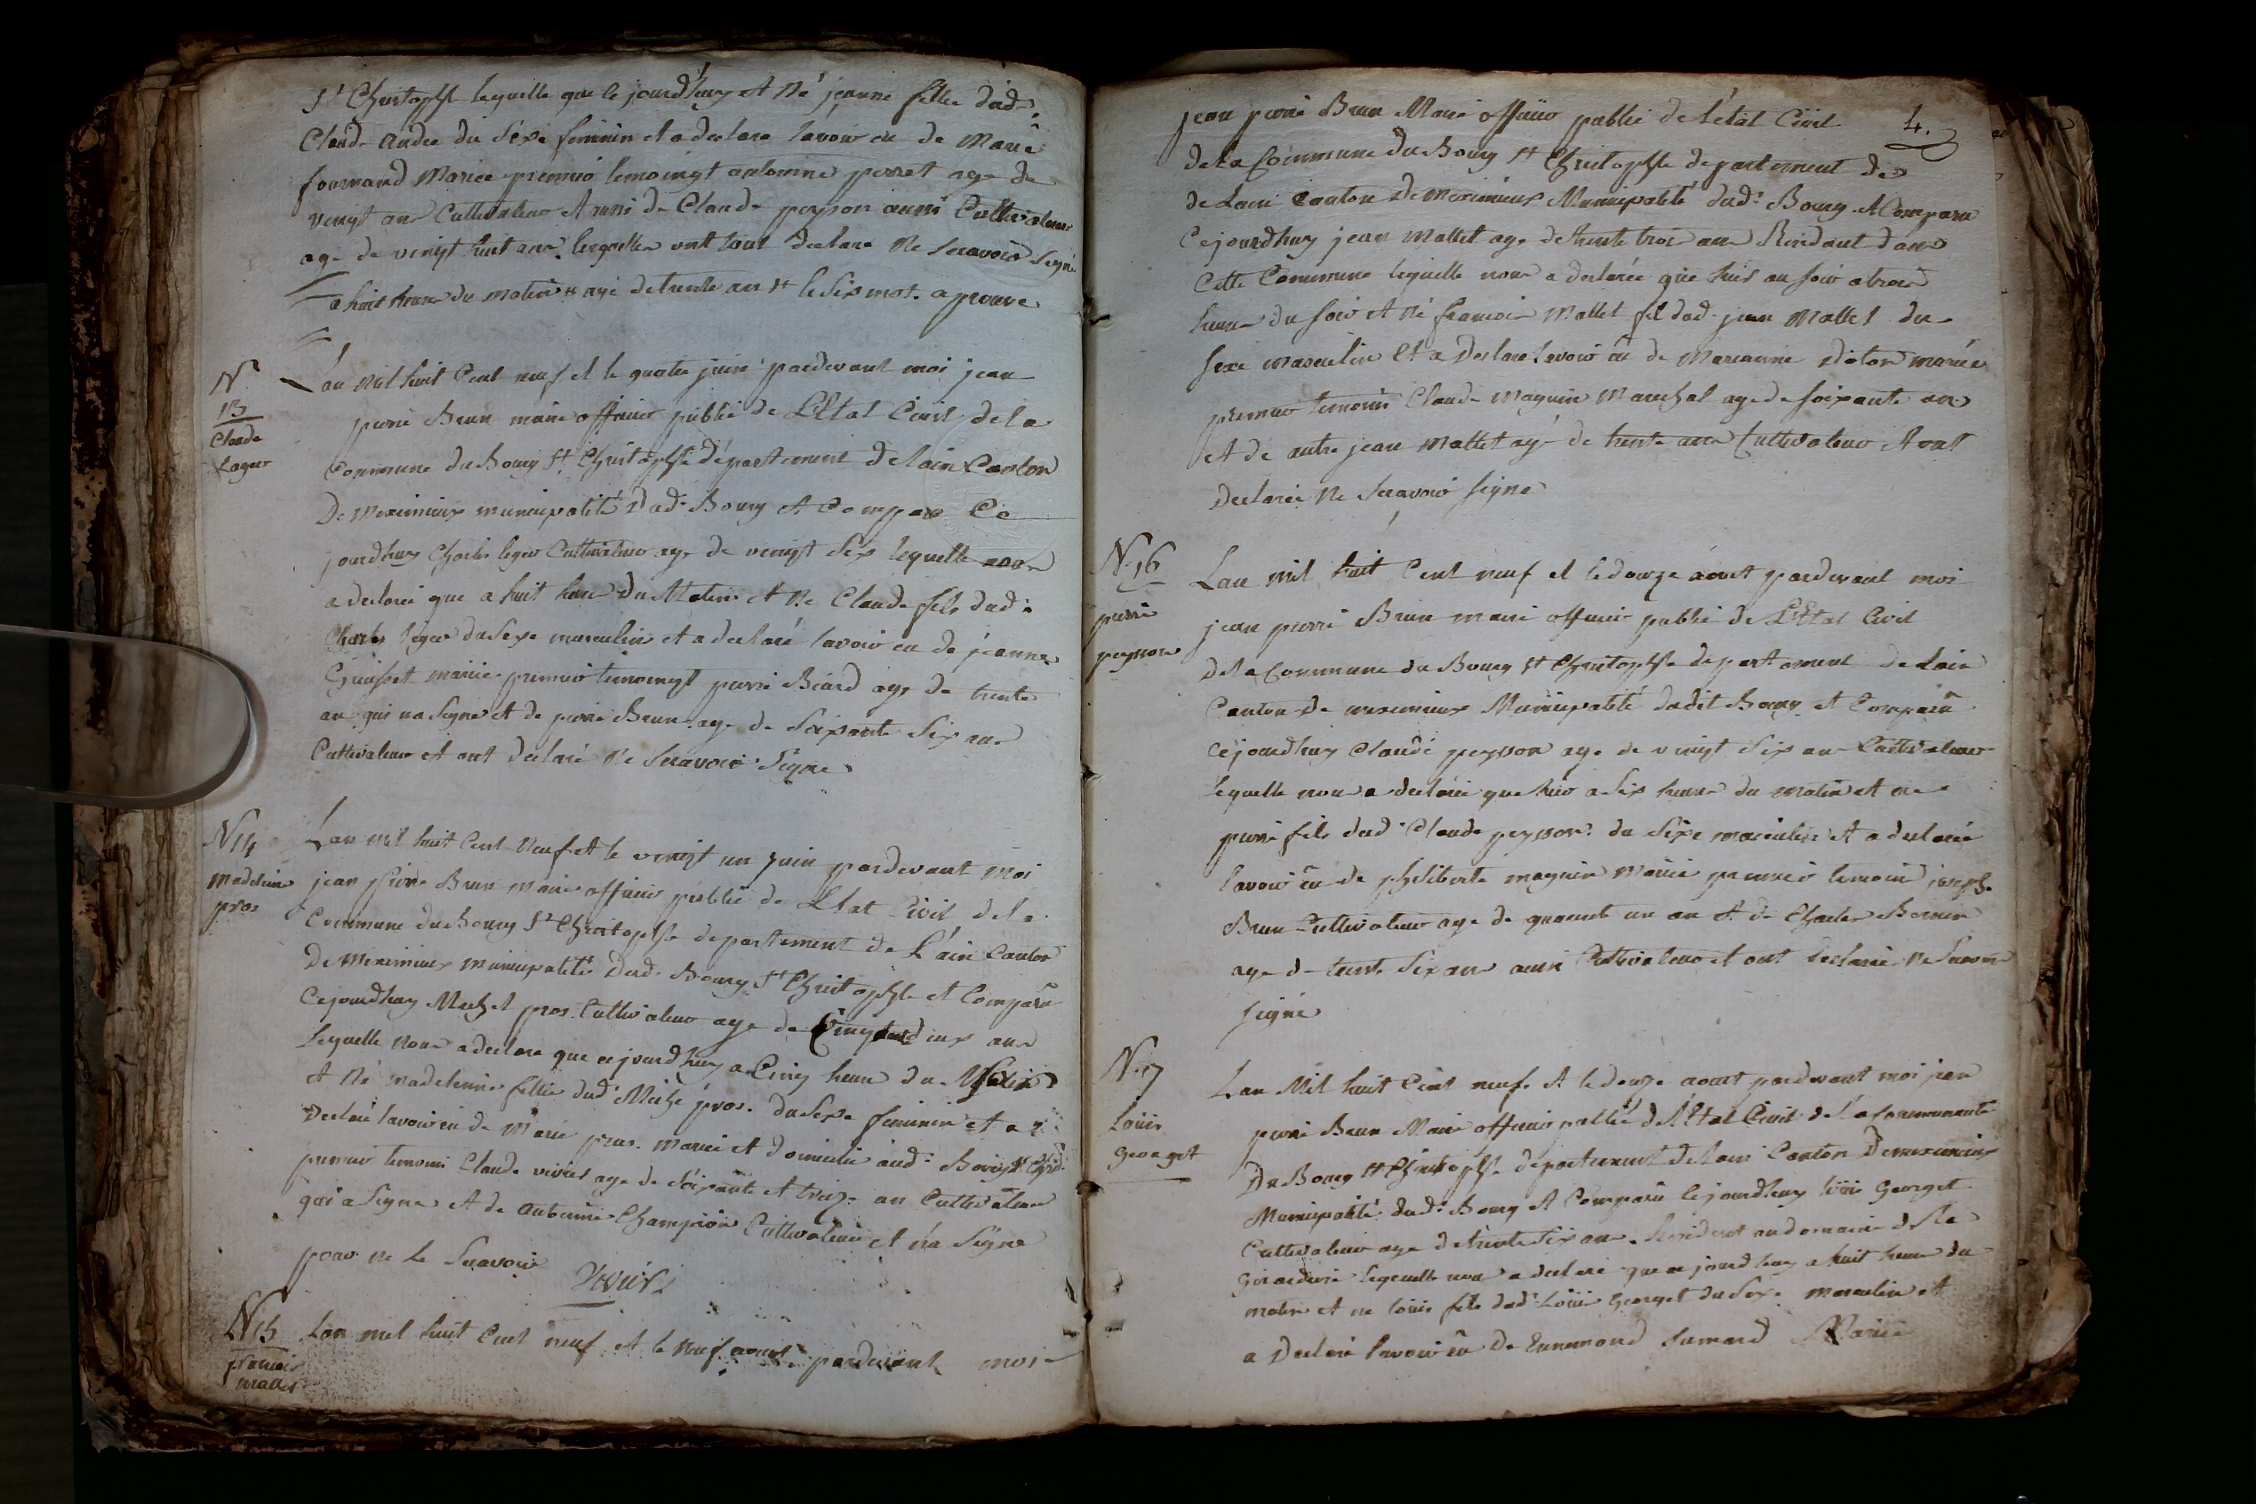 St Christophle lequelle que le jourdhuy et né jeanne fillie dud.
Claude andre du sexe feminin et a declare lavoir eu de Marie
fournand Mariee premier temoingt antoinne perret age de
vingt an Cultivateur et aussi de Claude peyson aussi Cultivateur
age de vingt huit ans lesquelle ont tout declare ne scavoir signé
a huit heure du matin # age de trente an # le six mot. aprouve
N°
13
Claude
Legeor
Lan mil huit Cent neuf et le quatre juin pardevant moi jean
pierre Brun maire officier publié de LEtat Civil de la
Commune du Bourg St Christophle département de lain Canton
De meximieux municipalité dud. Bourg et Compar Ce
jourdhuy Charles legeor Cultivateur age de vingt six lequelle nous
a declarée que a huit heure du Matin et ne Claude fils dud.
Charles legeor du sexe masculin et a declaré lavoir eu de jeanne
mariée premier temoingt pierre Béard age de trente
an qui na signe et de pierre Brun age de soixante six ans
Cultivateur et ont declaré ne scavoir signe
N 14
Madeleine
pros
Lan mil huit Cent neuf et le vingt un juin pardevant moi
jean pierre Brun maire officier publié de LEtat Civil de la
Commune du Bourg St Christophle departement de L'ain Canton
De Meximieux municipalité Dud. Bourg St Christophle et Comparu
Cejourdhuy Michel pros Cultivateur age de deux ans
Lequelle nous a declare que cejourdhuy a Cinq heure du Matin
et né madeleine fillie dud. Miché pros. du sexe feminin et a
Declaré lavoir eu de Marie pras. mariée et domicilié aud. Bourg St Chr.
premier temoin Claude vivier age de soixante et treize an Cultivateur
qui a signe et de antoinne Champion Cultivateur et n'a signe
pour ne le scavoir
Vivier
N 15
francois
mallet
Lan mil huit Cent neuf et le neuf aoust pardevant moi
4.
jean pierre Brun Maire officier publié de létat Civil
de la Commune du Bourg St Christophle departement de
de Lain Canton De meximieux Municipalité dud. Bourg et Comparu
Cejourdhuy jean mallet age de trente trois an Residant dans
Cette Commune lequelle nous a declarée que hier au soir a trois
heure du soir et né francois Mallet fil dud. jean Mallet du
sexe masculin et a declare lavoir eu de Marianne mariée
premier temoin Claude Magnin Marechal age de soixante an
et de autre jean Mallet agé de trente ans Cultivateur et ont
Declarée ne scavoir signe
N. 16
pierre
peysson
Lan mil huit Cent neuf et le douze aoust pardevant moi
jean pierre Brun maire officier publié de LEtat Civil
de la Commune du Bourg St Christophle departement de Lain
Canton de meximieux Municipalité dudit Bourg et Comparu
Cejourdhuy Claude peysson age de vingt six an Cultivateur
lequelle nous a declarée que hier a six heure du matin et ne
pierre fils dud. Claude peysson du sexe masculin et a declarée
lavoir eu de philiberte magnin Mariée premier temoin joseph
Brun Cultivateur age de quarente un an et de Charles Bernin
age de trente six an aussi Cultivateur et ont declarée ne scavoir
signé
N. 17
Louis
georget
Lan Mil huit Cent neuf et le douze aoust pardevant moi jean
pierre Brun Maire officier publié de létat Civil de la Communauté
Du Bourg St Christophle departement de lain Canton De meximieux
Municipalité dud. Bourg et Comparu Cejourdhuy louis Georget
Cultivateur age de trente six an Residant au domaine de la
lequelle nous a declaré que cejourdhuy a huit heure du
matin et ne louis fils dud. Louis Georget du sexe masculin et
a Declaré lavoir eu de Ennemond Mariée